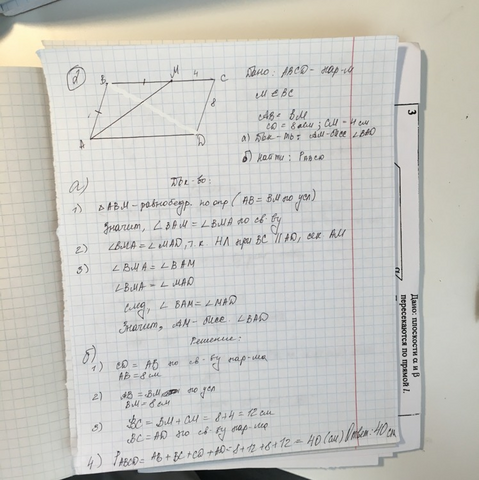 2
B M 4 C
8
A D
Дано: ABCD - пар-м
M ∈ BC
AB = BM
CD = 8 см; CM - 4 см
а) Док-ть: AM - бисс ∠BAD
б) Найти: P ABCD
а) Док-во:
1) △ABM - равнобедр. по опр (AB = BM по усл)
Значит, ∠BAM = ∠BMA по св-ву
2) ∠BMA = ∠MAD, т.к. НЛ при BC || AD, сек AM
3) ∠BMA = ∠BAM
∠BMA = ∠MAD
след, ∠BAM = ∠MAD
Значит, AM - бисс ∠BAD
б) Решение:
1) CD = AB по св-ву пар-ма
AB = 8 см
2) AB = BM по усл
BM = 8 см
3) BC = BM + CM = 8 + 4 = 12 см
BC = AD по св-ву пар-ма
4) P ABCD = AB + BC + CD + AD = 8 + 12 + 8 + 12 = 40 (см) Ответ: 40 см
3
Дано: плоскости α и β
пересекаются по прямой l.